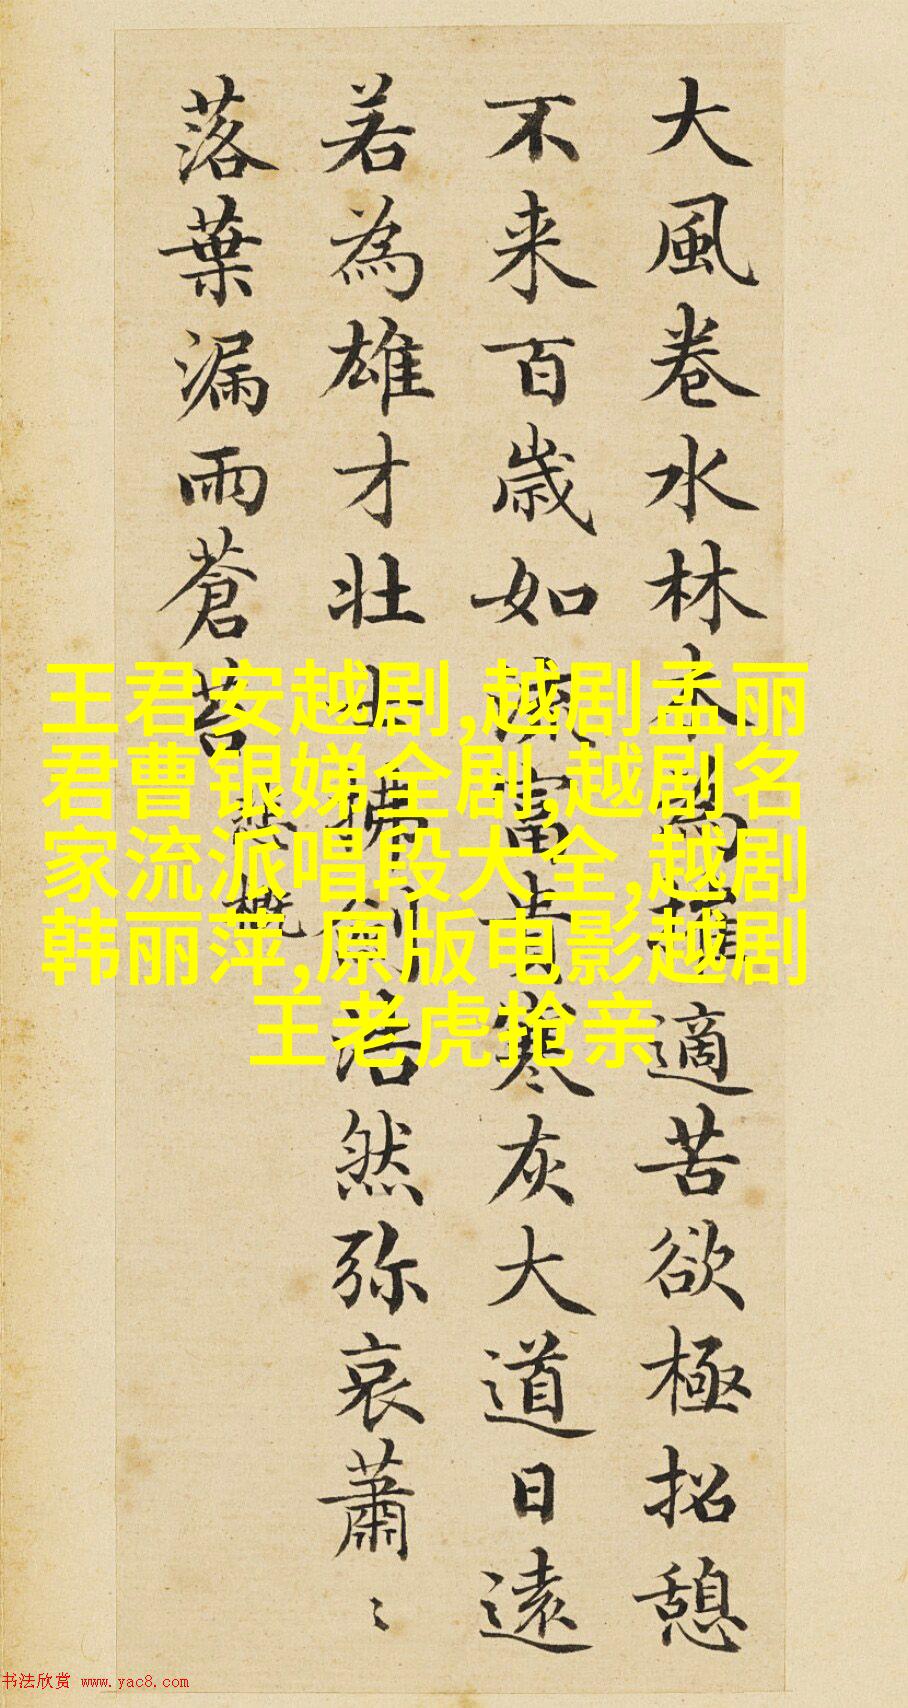 大風卷水林木為摧適苦欲極招憩
不来百歳如流富貴寒灰大道日遠
若為雄才壮士拂劍浩然弥哀蕭〻
落葉漏雨蒼苔
悲慨
王君安越剧,越剧孟丽
君曹银娣全剧,越剧名
家流派唱段大全,越剧
韩丽萍,原版电影越剧
王老虎抢亲
书法欣赏 www.yac8.com